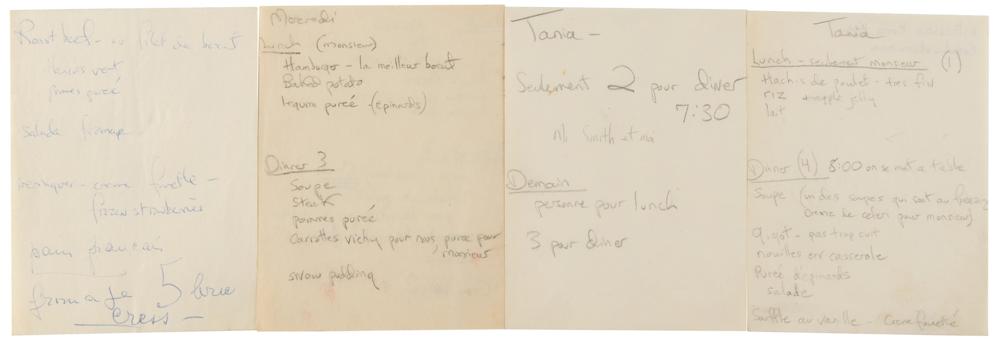 Roast beef - ou filet de boeuf
haricots vert
pommes pureé
salade fromage
creme fouetté -
frozen strawberries
pain francais
fromage 5 brie
cress -
Mercredi
Lunch (monsieur)
Hamburger - la meilleur boeuf
Baked potato
legume pureé (épinards)
Dinner 3
Soupe
Steak
pommes pureé
Carrottes vichy pour nous, pureé pour
monsieur
snow pudding
Tania -
Seulement 2 pour diner
7:30
Mr Smith et moi
Demain
personne pour lunch
3 pour diner
Tania
Lunch - seulement monsieur (1)
Hachis de poulet - tres fin
riz + apple jelly
lait
Dinner (4) 8:00 on se met a table
Soupe (un des soupes qui sont au freezing
Creme de celeri pour monsieur)
gigot - pas trop cuit
nouilles en casserole
Pureé d'épinards
salade
Soufflé au vanille - Creme fouetté